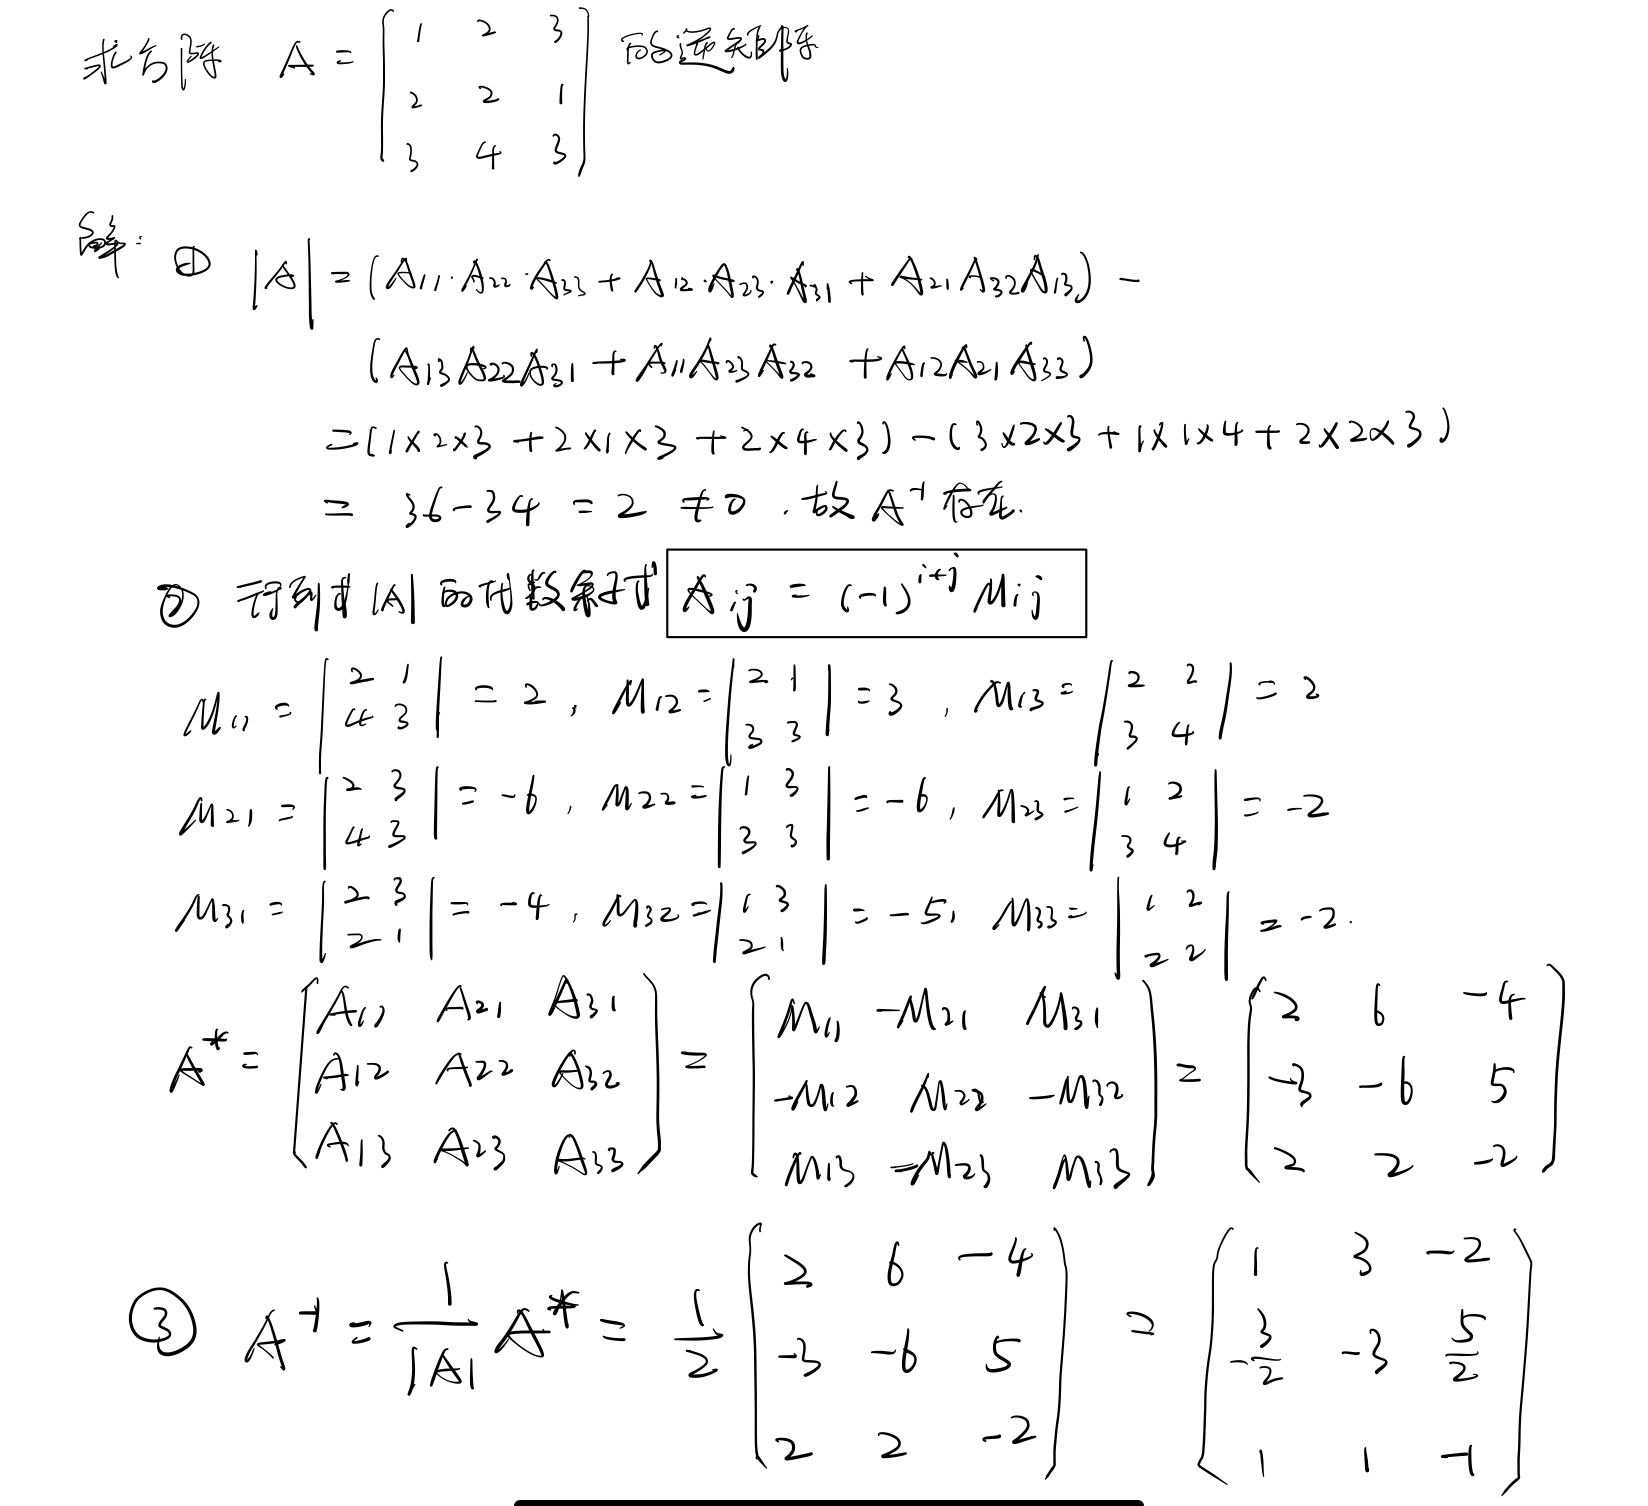 求方阵 A = [1 2 3; 2 2 1; 3 4 3] 的逆矩阵
解: ① |A| = (A11·A22·A33 + A12·A23·A31 + A21A32A13) −
(A13A22A31 + A11A23A32 + A12A21A33)
= (1×2×3 + 2×1×3 + 2×4×3) − (3×2×3 + 1×1×4 + 2×2×3)
= 36−34 = 2 ≠0 . 故 A⁻¹ 存在.
② 行列式 |A| 的代数余子式 Aij = (−1)^{i+j} Mij
M11 = |2 1; 4 3| = 2 , M12 = |2 1; 3 3| = 3 , M13 = |2 2; 3 4| = 2
M21 = |2 3; 4 3| = −6 , M22 = |1 3; 3 3| = −6 , M23 = |1 2; 3 4| = −2
M31 = |2 3; 2 1| = −4 , M32 = |1 3; 2 1| = −5, M33 = |1 2; 2 2| = −2.
A* = [A11 A21 A31; A12 A22 A32; A13 A23 A33] = [M11 −M21 M31; −M12 M22 −M32; M13 −M23 M33] = [2 6 −4; −3 −6 5; 2 2 −2]
③ A⁻¹ = 1/|A| A* = 1/2 [2 6 −4; −3 −6 5; 2 2 −2] = [1 3 −2; −3/2 −3 5/2; 1 1 −1]